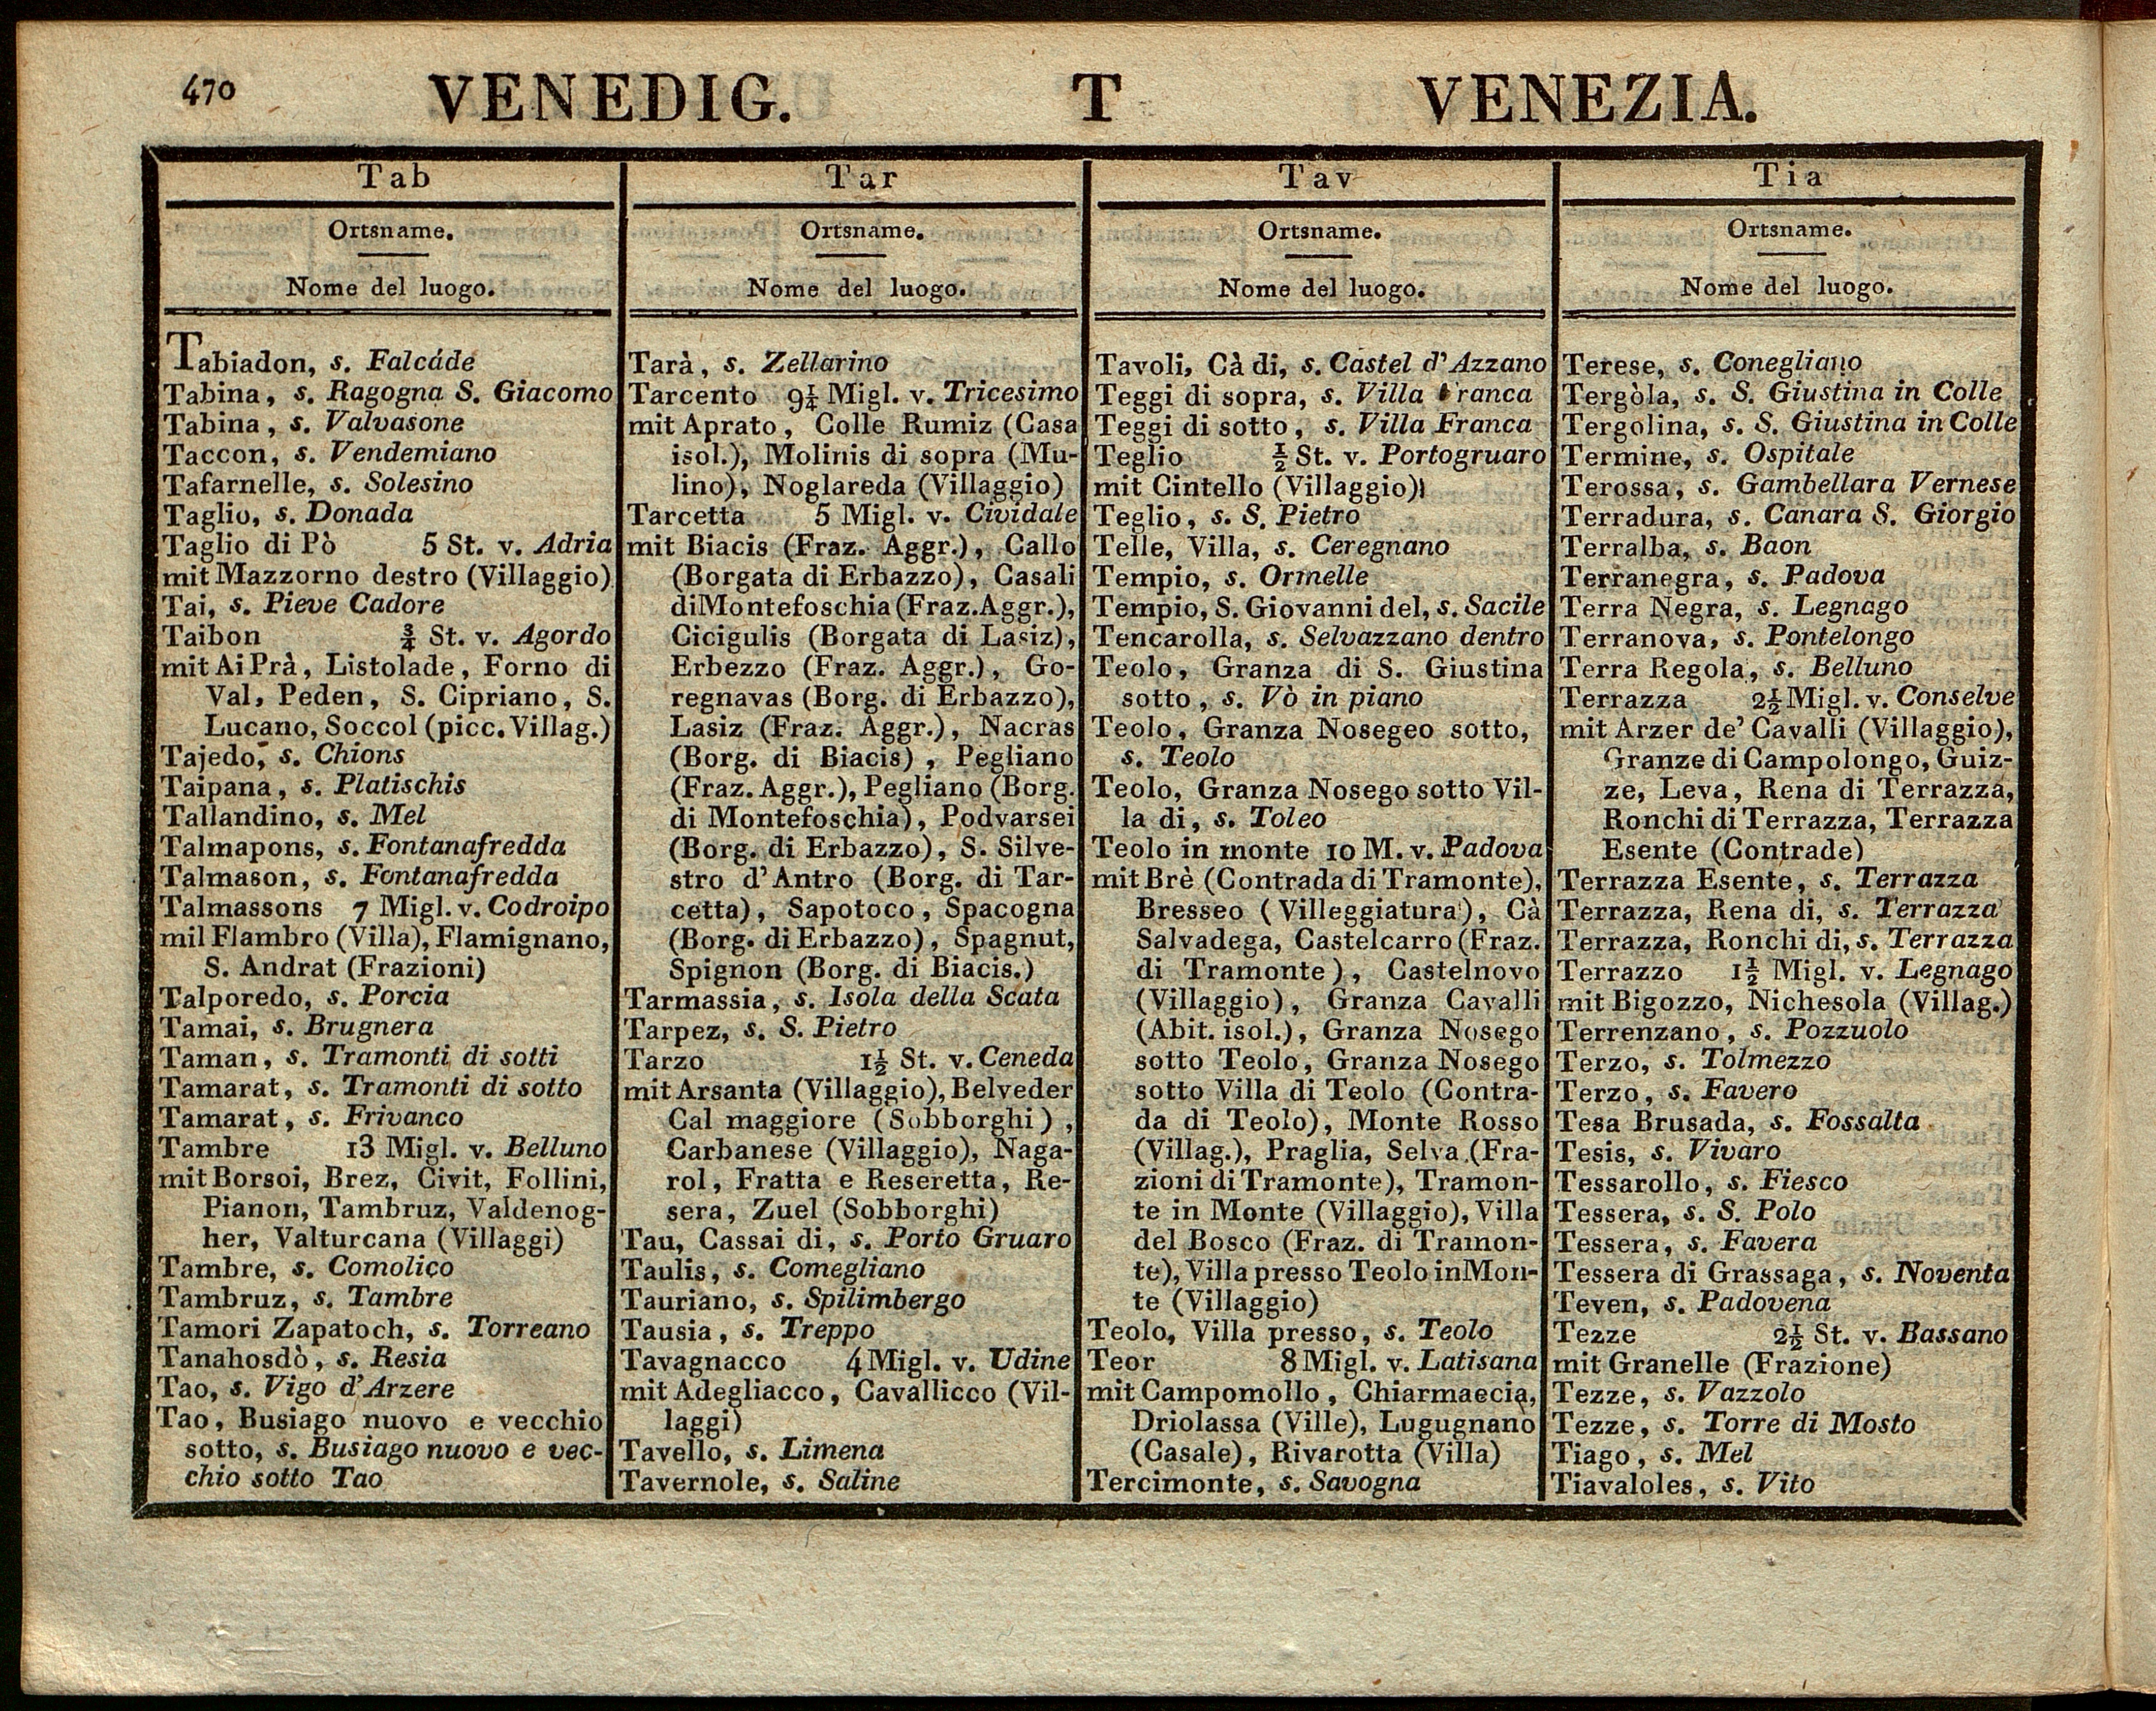 470
VENEDIG. T VENEZIA.
Tab
Ortsname.
Nome del luogo.
Tabiadon, s. Falcáde
Tabina, s. Ragogna S. Giacomo
Tabina, s. Valvasone
Taccon, s. Vendemiano
Tafarnelle, s. Solesino
Taglio, s. Donada
Taglio di Pò 5 St. v. Adria
mit Mazzorno destro (Villaggio)
Tai, s. Pieve Cadore
Taibon ¾ St. v. Agordo
mit Ai Prà, Listolade, Forno di
Val, Peden, S. Cipriano, S.
Lucano, Soccol (picc. Villag.)
Tajedo, s. Chions
Taipana, s. Platischis
Tallandino, s. Mel
Talmapons, s. Fontanafredda
Talmason, s. Fontanafredda
Talmassons 7 Migl. v. Codroipo
mil Flambro (Villa), Flamignano,
S. Andrat (Frazioni)
Talporedo, s. Porcia
Tamai, s. Brugnera
Taman, s. Tramonti di sotti
Tamarat, s. Tramonti di sotto
Tamarat, s. Frivanco
Tambre 13 Migl. v. Belluno
mit Borsoi, Brez, Civit, Follini,
Pianon, Tambruz, Valdenog-
her, Valturcana (Villaggi)
Tambre, s. Comolico
Tambruz, s. Tambre
Tamori Zapatoch, s. Torreano
Tanahosdò, s. Resia
Tao, s. Vigo d'Arzere
Tao, Busiago nuovo e vecchio
sotto, s. Busiago nuovo e vec-
chio sotto Tao
Tar
Ortsname.
Nome del luogo.
Tarà, s. Zellarino
Tarcento 9¼ Migl. v. Tricesimo
mit Aprato, Colle Rumiz (Casa
isol.), Molinis di sopra (Mu-
lino), Noglareda (Villaggio)
Tarcetta 5 Migl. v. Cividale
mit Biacis (Fraz. Aggr.), Callo
(Borgata di Erbazzo), Casali
di Montefoschia (Fraz. Aggr.),
Cicigulis (Borgata di Lasiz),
Erbezzo (Fraz. Aggr.), Go-
regnavas (Borg. di Erbazzo),
Lasiz (Fraz. Aggr.), Nacras
(Borg. di Biacis), Pegliano
(Fraz. Aggr.), Pegliano (Borg.
di Montefoschia), Podvarsei
(Borg. di Erbazzo), S. Silve-
stro d'Antro (Borg. di Tar-
cetta), Sapotoco, Spacogna
(Borg. di Erbazzo), Spagnut,
Spignon (Borg. di Biacis.)
Tarmassia, s. Isola della Scata
Tarpez, s. S. Pietro
Tarzo 1½ St. v. Ceneda
mit Arsanta (Villaggio), Belveder
Cal maggiore (Sobborghi),
Carbanese (Villaggio), Naga-
rol, Fratta e Reseretta, Re-
sera, Zuel (Sobborghi)
Tau, Cassai di, s. Porto Gruaro
Taulis, s. Comegliano
Tauriano, s. Spilimbergo
Tausia, s. Treppo
Tavagnacco 4 Migl. v. Udine
mit Adegliacco, Cavallicco (Vil-
laggi)
Tavello, s. Limena
Tavernole, s. Saline
Tav
Ortsname.
Nome del luogo.
Tavoli, Cà di, s. Castel d'Azzano
Teggi di sopra, s. Villa Franca
Teggi di sotto, s. Villa Franca
Teglio ½ St. v. Portogruaro
mit Cintello (Villaggio)
Teglio, s. S. Pietro
Telle, Villa, s. Ceregnano
Tempio, s. Ormelle
Tempio, S. Giovanni del, s. Sacile
Tencarolla, s. Selvazzano dentro
Teolo, Granza di S. Giustina
sotto, s. Vò in piano
Teolo, Granza Nosegeo sotto,
s. Teolo
Teolo, Granza Nosego sotto Vil-
la di, s. Toleo
Teolo in monte 10 M. v. Padova
mit Brè (Contrada di Tramonte),
Bresseo (Villeggiatura), Cà
Salvadega, Castelcarro (Fraz.
di Tramonte), Castelnovo
(Villaggio), Granza Cavalli
(Abit. isol.), Granza Nosego
sotto Teolo, Granza Nosego
sotto Villa di Teolo (Contra-
da di Teolo), Monte Rosso
(Villag.), Praglia, Selva (Fra-
zioni di Tramonte), Tramon-
te in Monte (Villaggio), Villa
del Bosco (Fraz. di Tramon-
te), Villa presso Teolo in Mon-
te (Villaggio)
Teolo, Villa presso, s. Teolo
Teor 8 Migl. v. Latisana
mit Campomollo, Chiarmaecia,
Driolassa (Ville), Lugugnano
(Casale), Rivarotta (Villa)
Tercimonte, s. Savogna
Tia
Ortsname.
Nome del luogo.
Terese, s. Conegliano
Tergòla, s. S. Giustina in Colle
Tergolina, s. S. Giustina in Colle
Termine, s. Ospitale
Terossa, s. Gambellara Vernese
Terradura, s. Canara S. Giorgio
Terralba, s. Baon
Terranegra, s. Padova
Terra Negra, s. Legnago
Terranova, s. Pontelongo
Terra Regola, s. Belluno
Terrazza 2½ Migl. v. Conselve
mit Arzer de' Cavalli (Villaggio),
Granze di Campolongo, Guiz-
ze, Leva, Rena di Terrazza,
Ronchi di Terrazza, Terrazza
Esente (Contrade)
Terrazza Esente, s. Terrazza
Terrazza, Rena di, s. Terrazza
Terrazza, Ronchi di, s. Terrazza
Terrazzo 1½ Migl. v. Legnago
mit Bigozzo, Nichesola (Villag.)
Terrenzano, s. Pozzuolo
Terzo, s. Tolmezzo
Terzo, s. Favero
Tesa Brusada, s. Fossalta
Tesis, s. Vivaro
Tessarollo, s. Fiesco
Tessera, s. S. Polo
Tessera, s. Favera
Tessera di Grassaga, s. Noventa
Teven, s. Padovena
Tezze 2½ St. v. Bassano
mit Granelle (Frazione)
Tezze, s. Vazzolo
Tezze, s. Torre di Mosto
Tiago, s. Mel
Tiavaloles, s. Vito